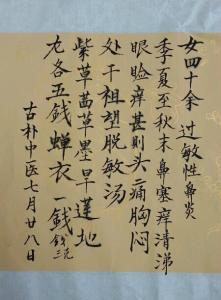 女四十余 过敏性鼻炎
季夏至秋末 鼻塞痒清涕
眼睑痒甚则头痛胸闷
处干祖望脱敏汤
紫草茜草墨旱莲地
龙各五錢蝉衣一錢
古朴中医七月廿八日